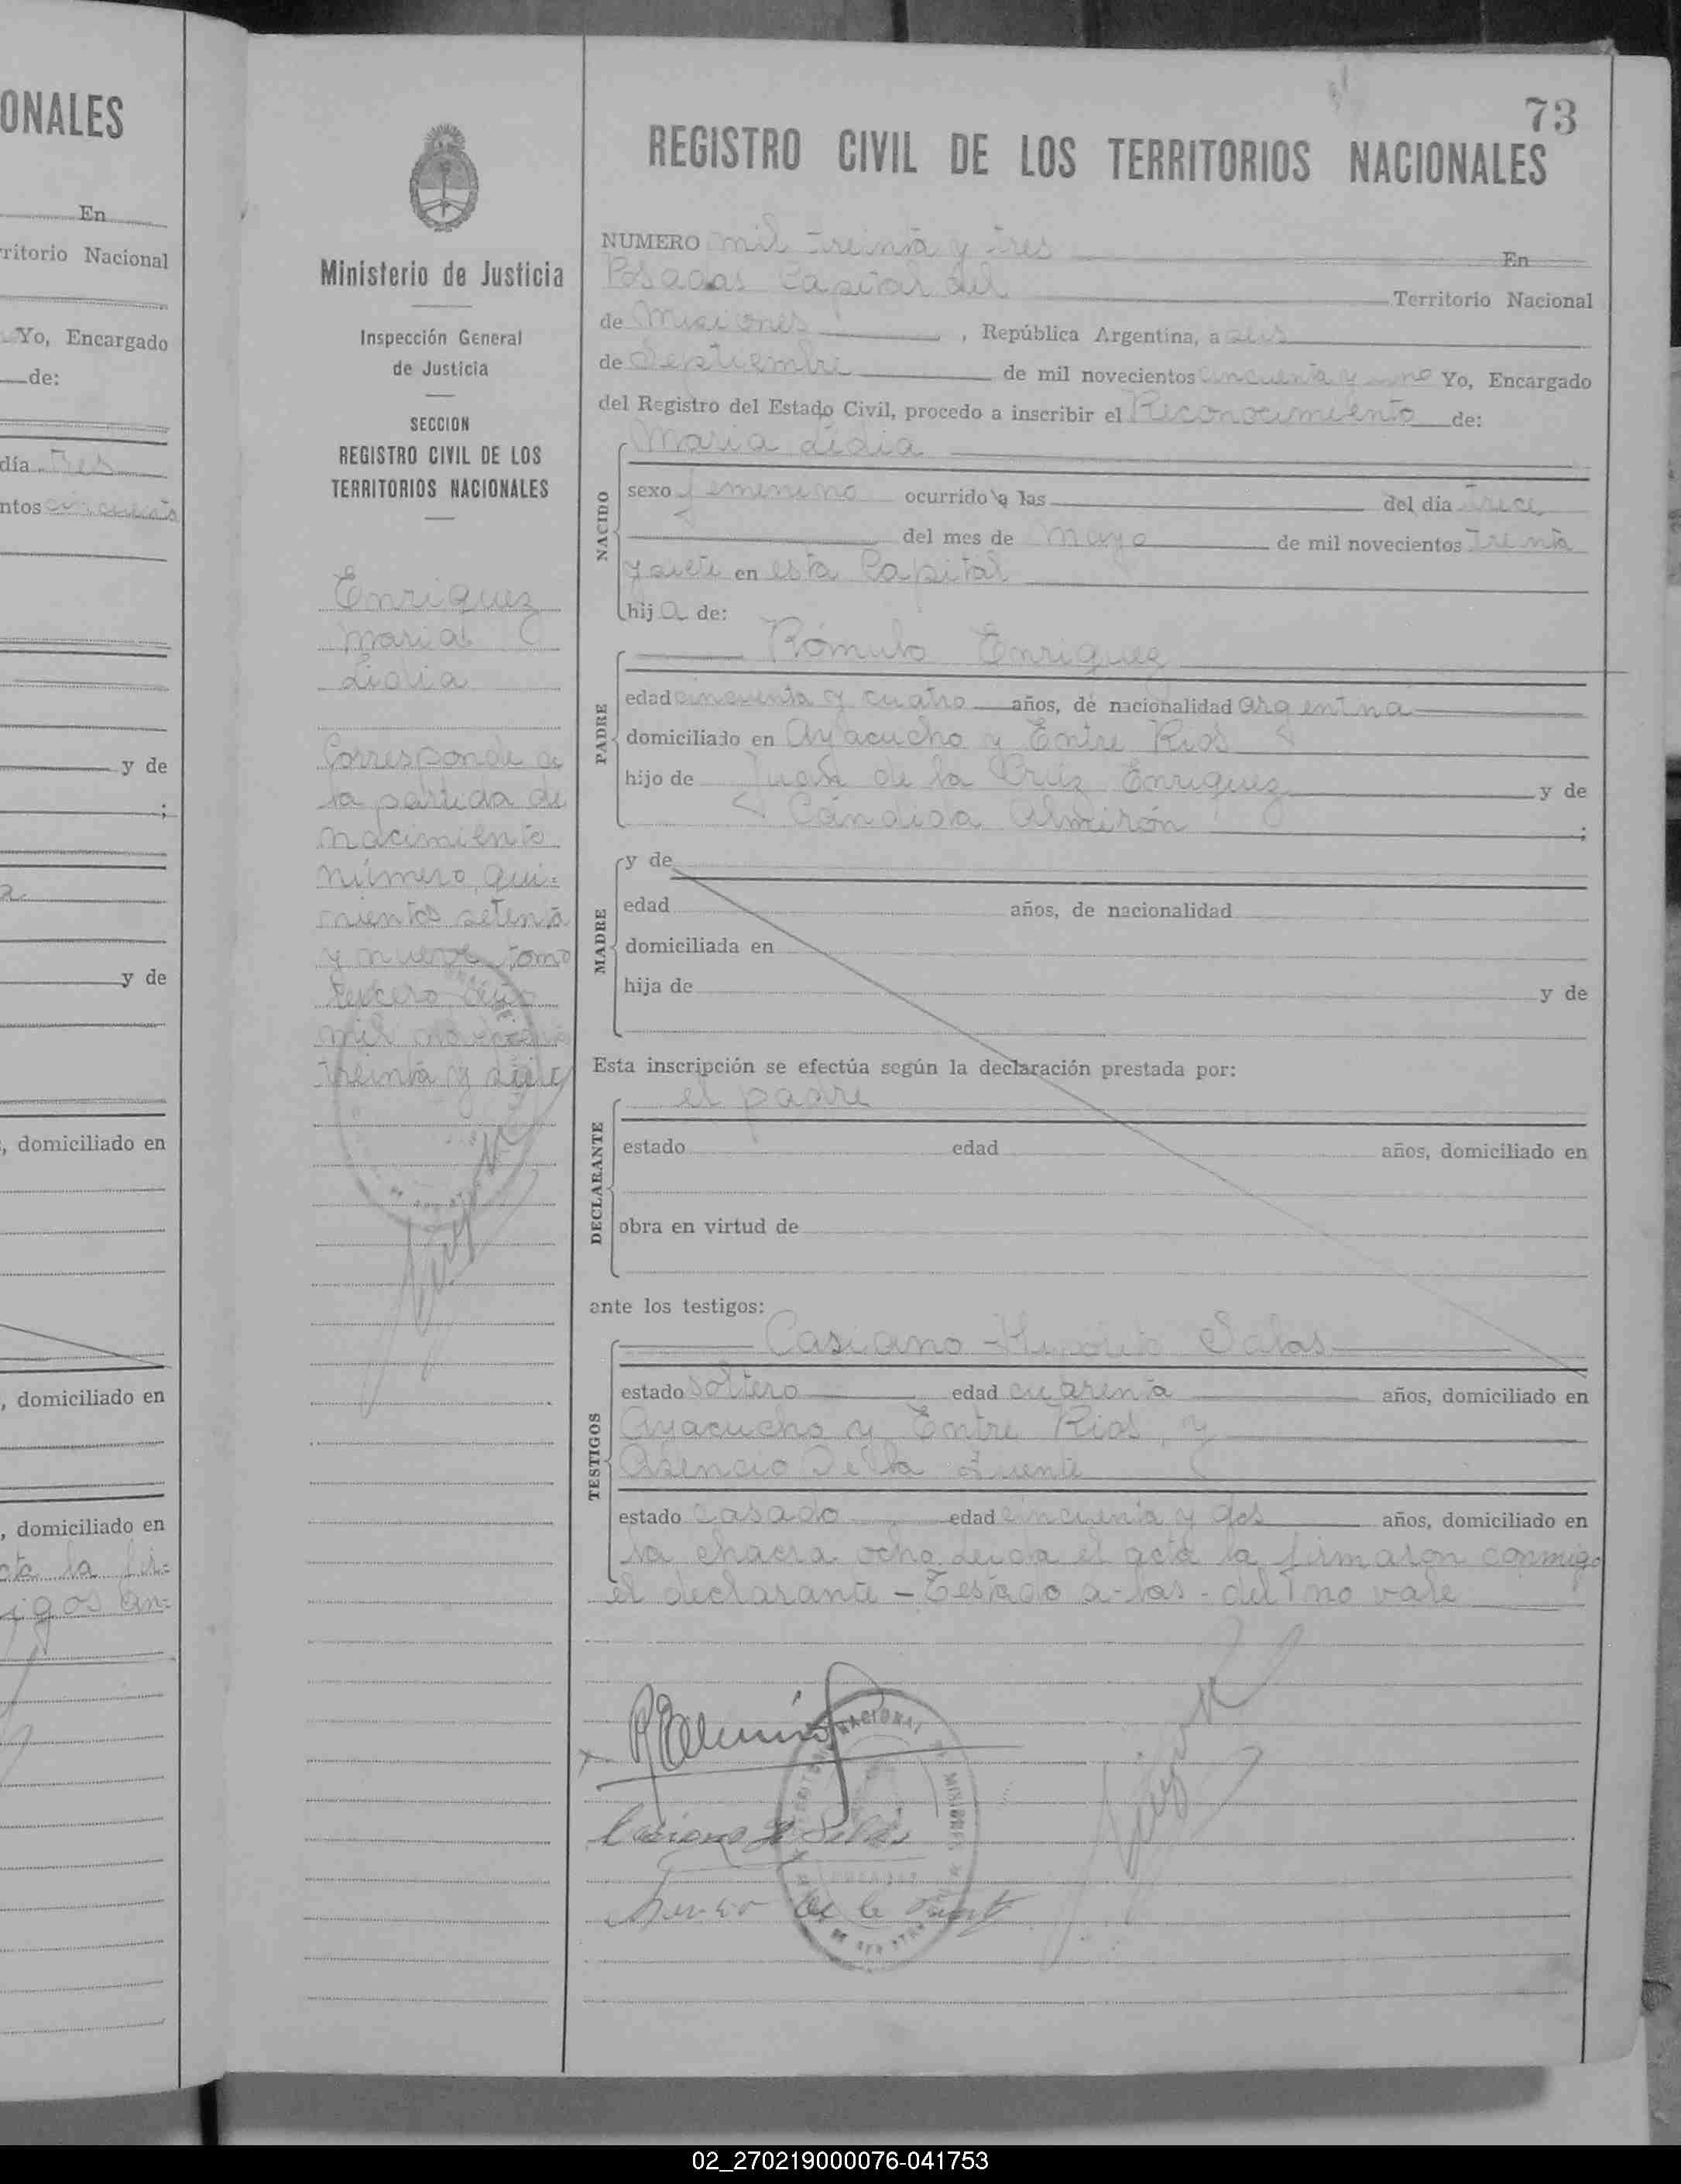 ONALES
En
ritorio Nacional
Yo, Encargado
de:
día tres
ntos cincuenta
y de
;
y de
, domiciliado en
, domiciliado en
, domiciliado en
la fir=
Ministerio de Justicia
Inspección General
de Justicia
SECCION
REGISTRO CIVIL DE LOS
TERRITORIOS NACIONALES
Enriquez
Maria
Lidia
Corresponde a
la partida de
nacimiento
número qui=
nientos setenta
y nueve tomo
tercero año
mil novecientos
treinta y siete
73
REGISTRO CIVIL DE LOS TERRITORIOS NACIONALES
NUMERO mil treinta y tres En
Posadas Capital del Territorio Nacional
de Misiones , República Argentina, a seis
de Septiembre de mil novecientos cincuenta y uno Yo, Encargado
del Registro del Estado Civil, procedo a inscribir el Reconocimiento de:
Maria Lidia
NACIDO
sexo femenino ocurrido a las del día trece
del mes de mayo de mil novecientos treinta
y siete en esta Capital
hija de:
Rómulo Enriquez
PADRE
edad cincuenta y cuatro años, de nacionalidad argentina
domiciliado en Ayacucho y Entre Rios
hijo de Juan de la Cruz Enriquez y de
Cándida Almirón ;
MADRE
y de
edad años, de nacionalidad
domiciliada en
hija de y de
Esta inscripción se efectúa según la declaración prestada por:
el padre
DECLARANTE
estado edad años, domiciliado en
obra en virtud de
ante los testigos:
Casiano Hipólito Salas
TESTIGOS
estado soltero edad cuarenta años, domiciliado en
Ayacucho y Entre Rios, y
Asencio De la Fuente
estado casado edad cincuenta y dos años, domiciliado en
la chacra ocho Leida el acta la firmaron conmigo
el declarante - Testado a-las-del no vale
NACIONAL
MISIONES
02_270219000076-041753